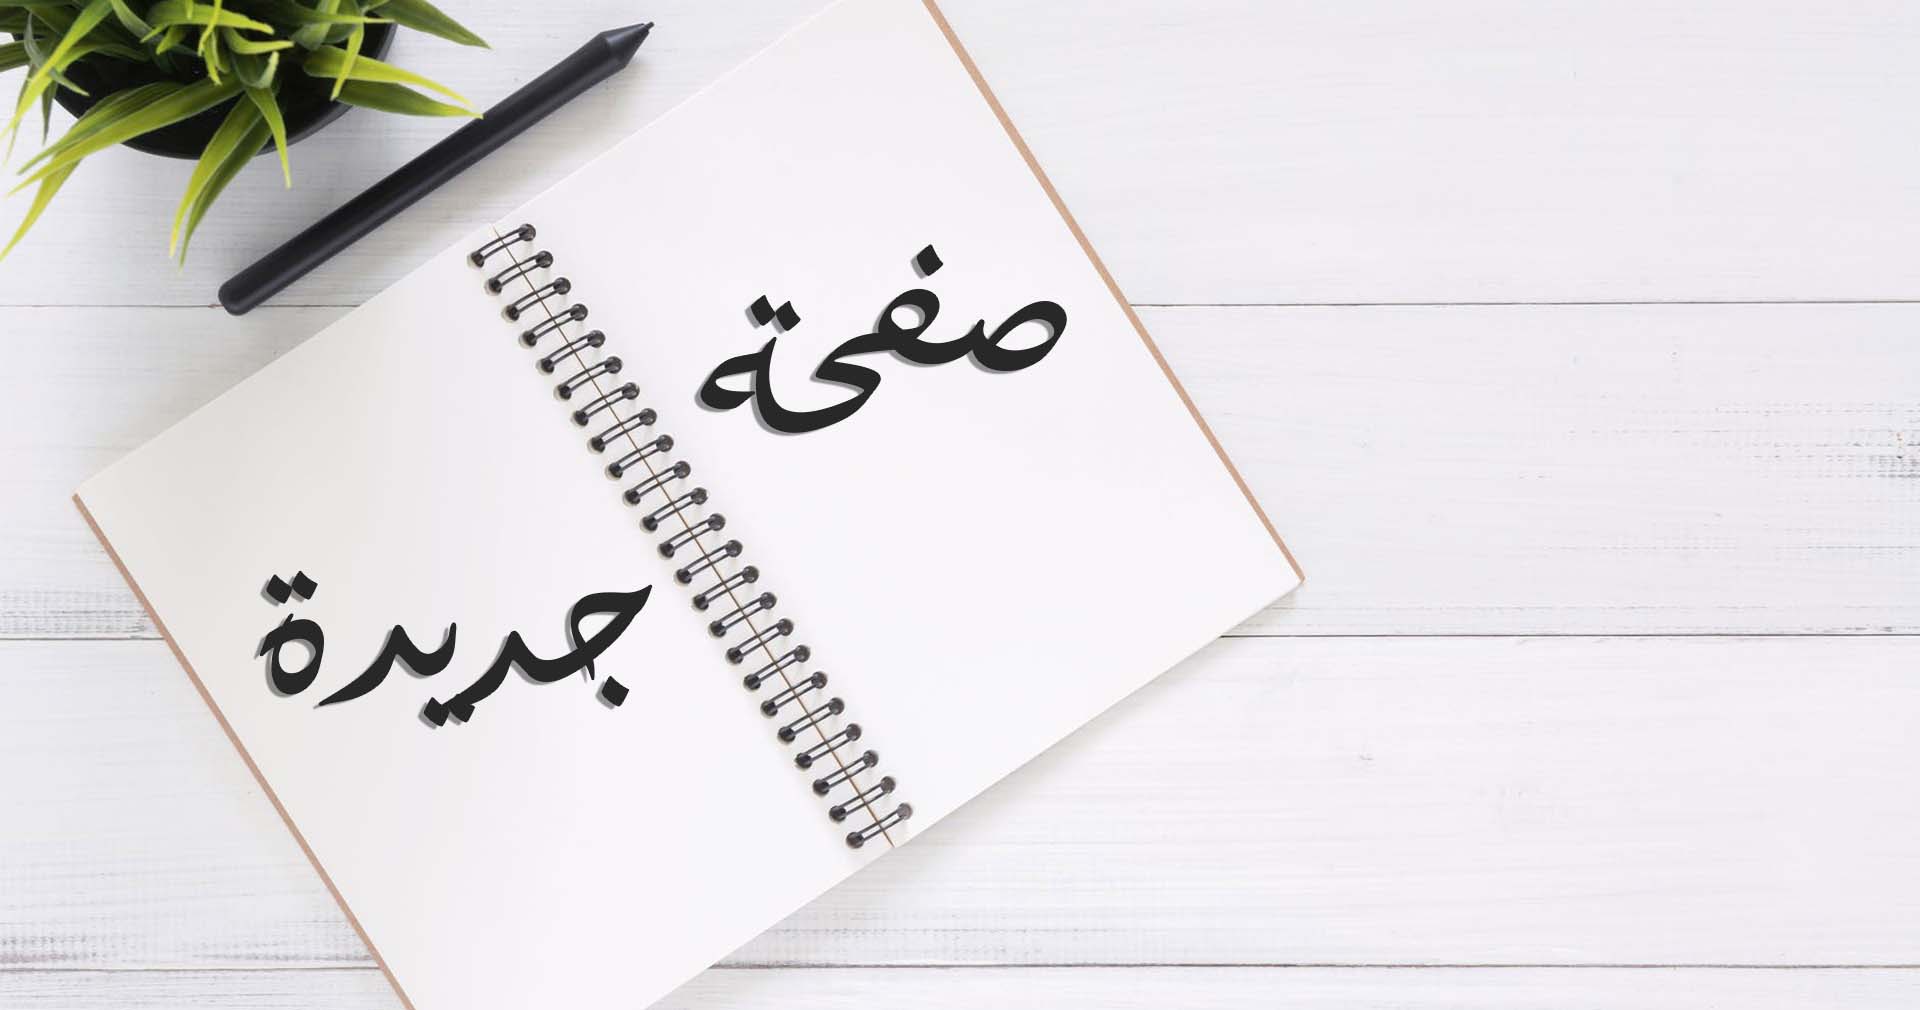 صفحة
جديدة